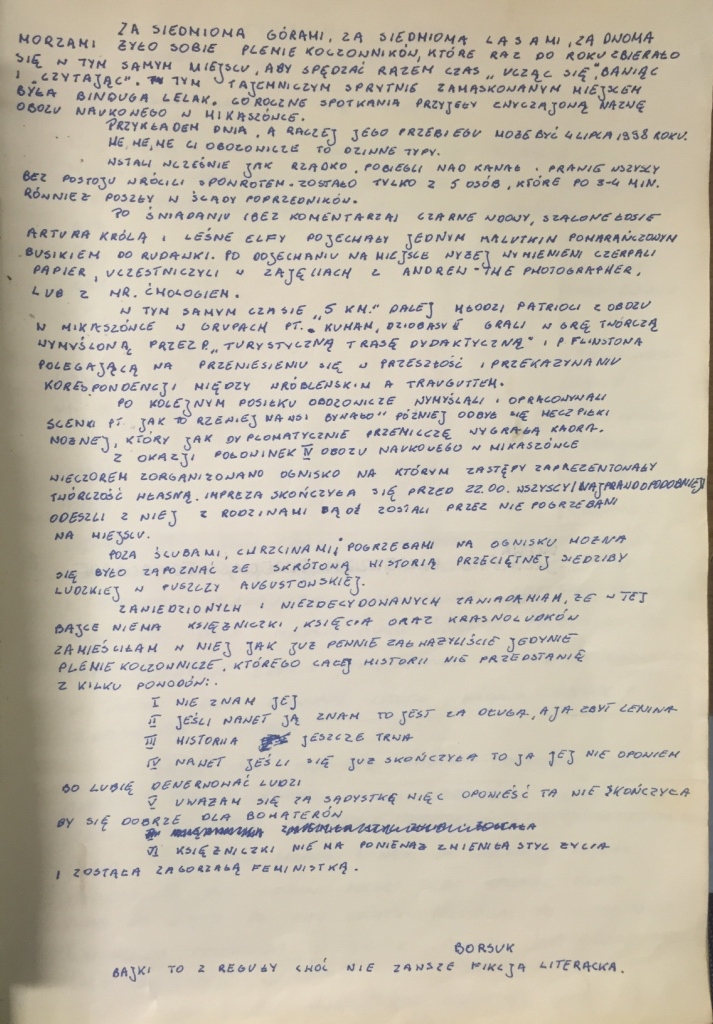 ZA SIEDMIOMA GÓRAMI, ZA SIEDMIOMA LASAMI, ZA DWOMA
MORZAMI ŻYŁO SOBIE PLEMIE KOCZOWNIKÓW, KTÓRE RAZ DO ROKU ZBIERAŁO
SIĘ W TYM SAMYM MIEJSCU, ABY SPĘDZAĆ RAZEM CZAS „UCZĄC SIĘ", BAWIĄC
I „CZYTAJĄC". TYM TAJEMNICZYM SPRYTNIE ZAMASKOWANYM MIEJSCEM
BYŁA BINDUGA LELAK. COROCZNE SPOTKANIA PRZYJĘŁY ZWYCZAJOWĄ NAZWĘ
OBOZU NAUKOWEGO W MIKASZÓWCE.
PRZYKŁADEM DNIA, A RACZEJ JEGO PRZEBIEGU MOŻE BYĆ 4 LIPCA 1998 ROKU.
HE, HE, HE CI OBOZOWICZE TO DZIWNE TYPY.
WSTALI WCZEŚNIE JAK RZADKO, POBIEGLI NAD KANAŁ I PRAWIE WSZYSCY
BEZ POSTOJU WRÓCILI SPOWROTEM. ZOSTAŁO TYLKO Z 5 OSÓB, KTÓRE PO 3-4 MIN.
RÓWNIEŻ POSZŁY W ŚLADY POPRZEDNIKÓW.
PO ŚNIADANIU (BEZ KOMENTARZA) CZARNE WDOWY, SZALONE ŁOSIE
ARTURA KRÓLA I LEŚNE ELFY POJECHAŁY JEDNYM MALUTKIM POMARAŃCZOWYM
BUSIKIEM DO RUDAWKI. PO DOJECHANIU NA MIEJSCE WYŻEJ WYMIENIENI CZERPALI
PAPIER, UCZESTNICZYLI W ZAJĘCIACH Z ANDREW - THE PHOTOGRAPHER,
LUB Z MR. ĆMOLOGIEM.
W TYM SAMYM CZASIE „5 KM." DALEJ MŁODZI PATRIOCI Z OBOZU
W MIKASZÓWCE W GRUPACH PT. KUMAN, DZIOBASY II GRALI W GRĘ TWÓRCZĄ
WYMYŚLONĄ PRZEZ P. „TURYSTYCZNĄ TRASĘ DYDAKTYCZNĄ" I P. FLINSTONA
POLEGAJĄCĄ NA PRZENIESIENIU SIĘ W PRZESZŁOŚĆ I PRZEKAZYWANIU
KORESPONDENCJI MIĘDZY WRÓBLEWSKIM A TRAUGUTTEM.
PO KOLEJNYM POSIŁKU OBOZOWICZE WYMYŚLALI I OPRACOWYWALI
SCENKI PT. JAK TO RZEWIEJ NA WSI BYWAŁO" PÓŹNIEJ ODBYŁ SIĘ MECZ PIŁKI
NOŻNEJ, KTÓRY JAK DYPLOMATYCZNIE PRZEMILCZĘ WYGRAŁA KADRA.
Z OKAZJI POŁOWINEK IV OBOZU NAUKOWEGO W MIKASZÓWCE
WIECZOREM ZORGANIZOWANO OGNISKO NA KTÓRYM ZASTĘPY ZAPREZENTOWAŁY
TWÓRCZOŚĆ WŁASNĄ. IMPREZA SKOŃCZYŁA SIĘ PRZED 22.00. WSZYSCY (NAJPRAWDOPODOBNIEJ)
ODESZLI Z NIEJ Z RODZINAMI BĄDŹ ZOSTALI PRZEZ NIE POGRZEBANI
NA MIEJSCU.
POZA ŚLUBAMI, CHRZCINAMI I POGRZEBAMI NA OGNISKU MOŻNA
SIĘ BYŁO ZAPOZNAĆ ZE SKRÓTONĄ HISTORIĄ PRZECIĘTNEJ SIEDZIBY
LUDZKIEJ W PUSZCZY AUGUSTOWSKIEJ.
ZAWIEDZIONYCH I NIEZDECYDOWANYCH ZAWIADAMIAM, ŻE W TEJ
BAJCE NIEMA KSIĘŻNICZKI, KSIĘCIA ORAZ KRASNOLUDKÓW
ZAMIEŚCIŁAM W NIEJ JAK JUŻ PEWNIE ZAUWAŻYLIŚCIE JEDYNIE
PLEMIE KOCZOWNICZE, KTÓREGO CAŁEJ HISTORII NIE PRZEDSTAWIĘ
Z KILKU POWODÓW:
I NIE ZNAM JEJ
II JEŚLI NAWET JĄ ZNAM TO JEST ZA DŁUGA, A JA ZBYT LENIWA
III HISTORIIA JESZCZE TRWA
IV NAWET JEŚLI SIĘ JUŻ SKOŃCZYŁA TO JA JEJ NIE OPOWIEM
BO LUBIĘ DENERWOWAĆ LUDZI
V UWAŻAM SIĘ ZA SADYSTKĘ WIĘC OPOWIEŚĆ TA NIE SKOŃCZYŁA
BY SIĘ DOBRZE DLA BOHATERÓW
VI KSIĘŻNICZKI NIE MA PONIEWAŻ ZMIENIŁA STYL ŻYCIA
I ZOSTAŁA ZAGORZAŁĄ FEMINISTKĄ.
BORSUK
BAJKI TO Z REGUŁY CHOĆ NIE ZAWSZE FIKCJA LITERACKA.